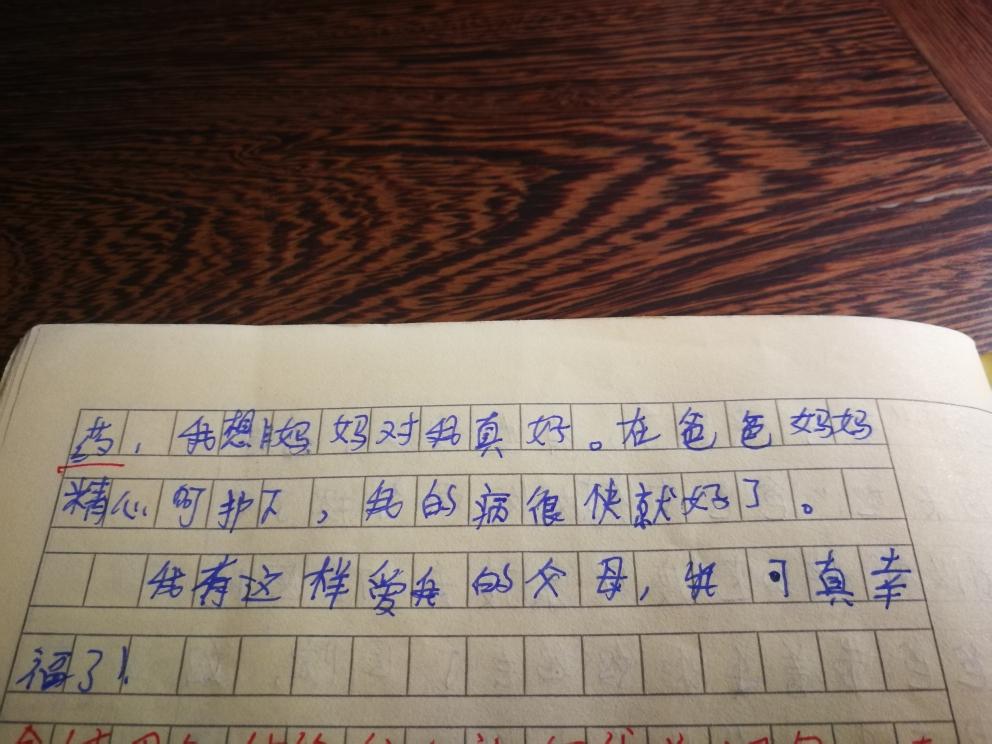 药，我想妈妈对我真好。在爸爸妈妈
精心呵护下，我的病很快就好了。
我有这样爱我的父母，我可真幸
福了！